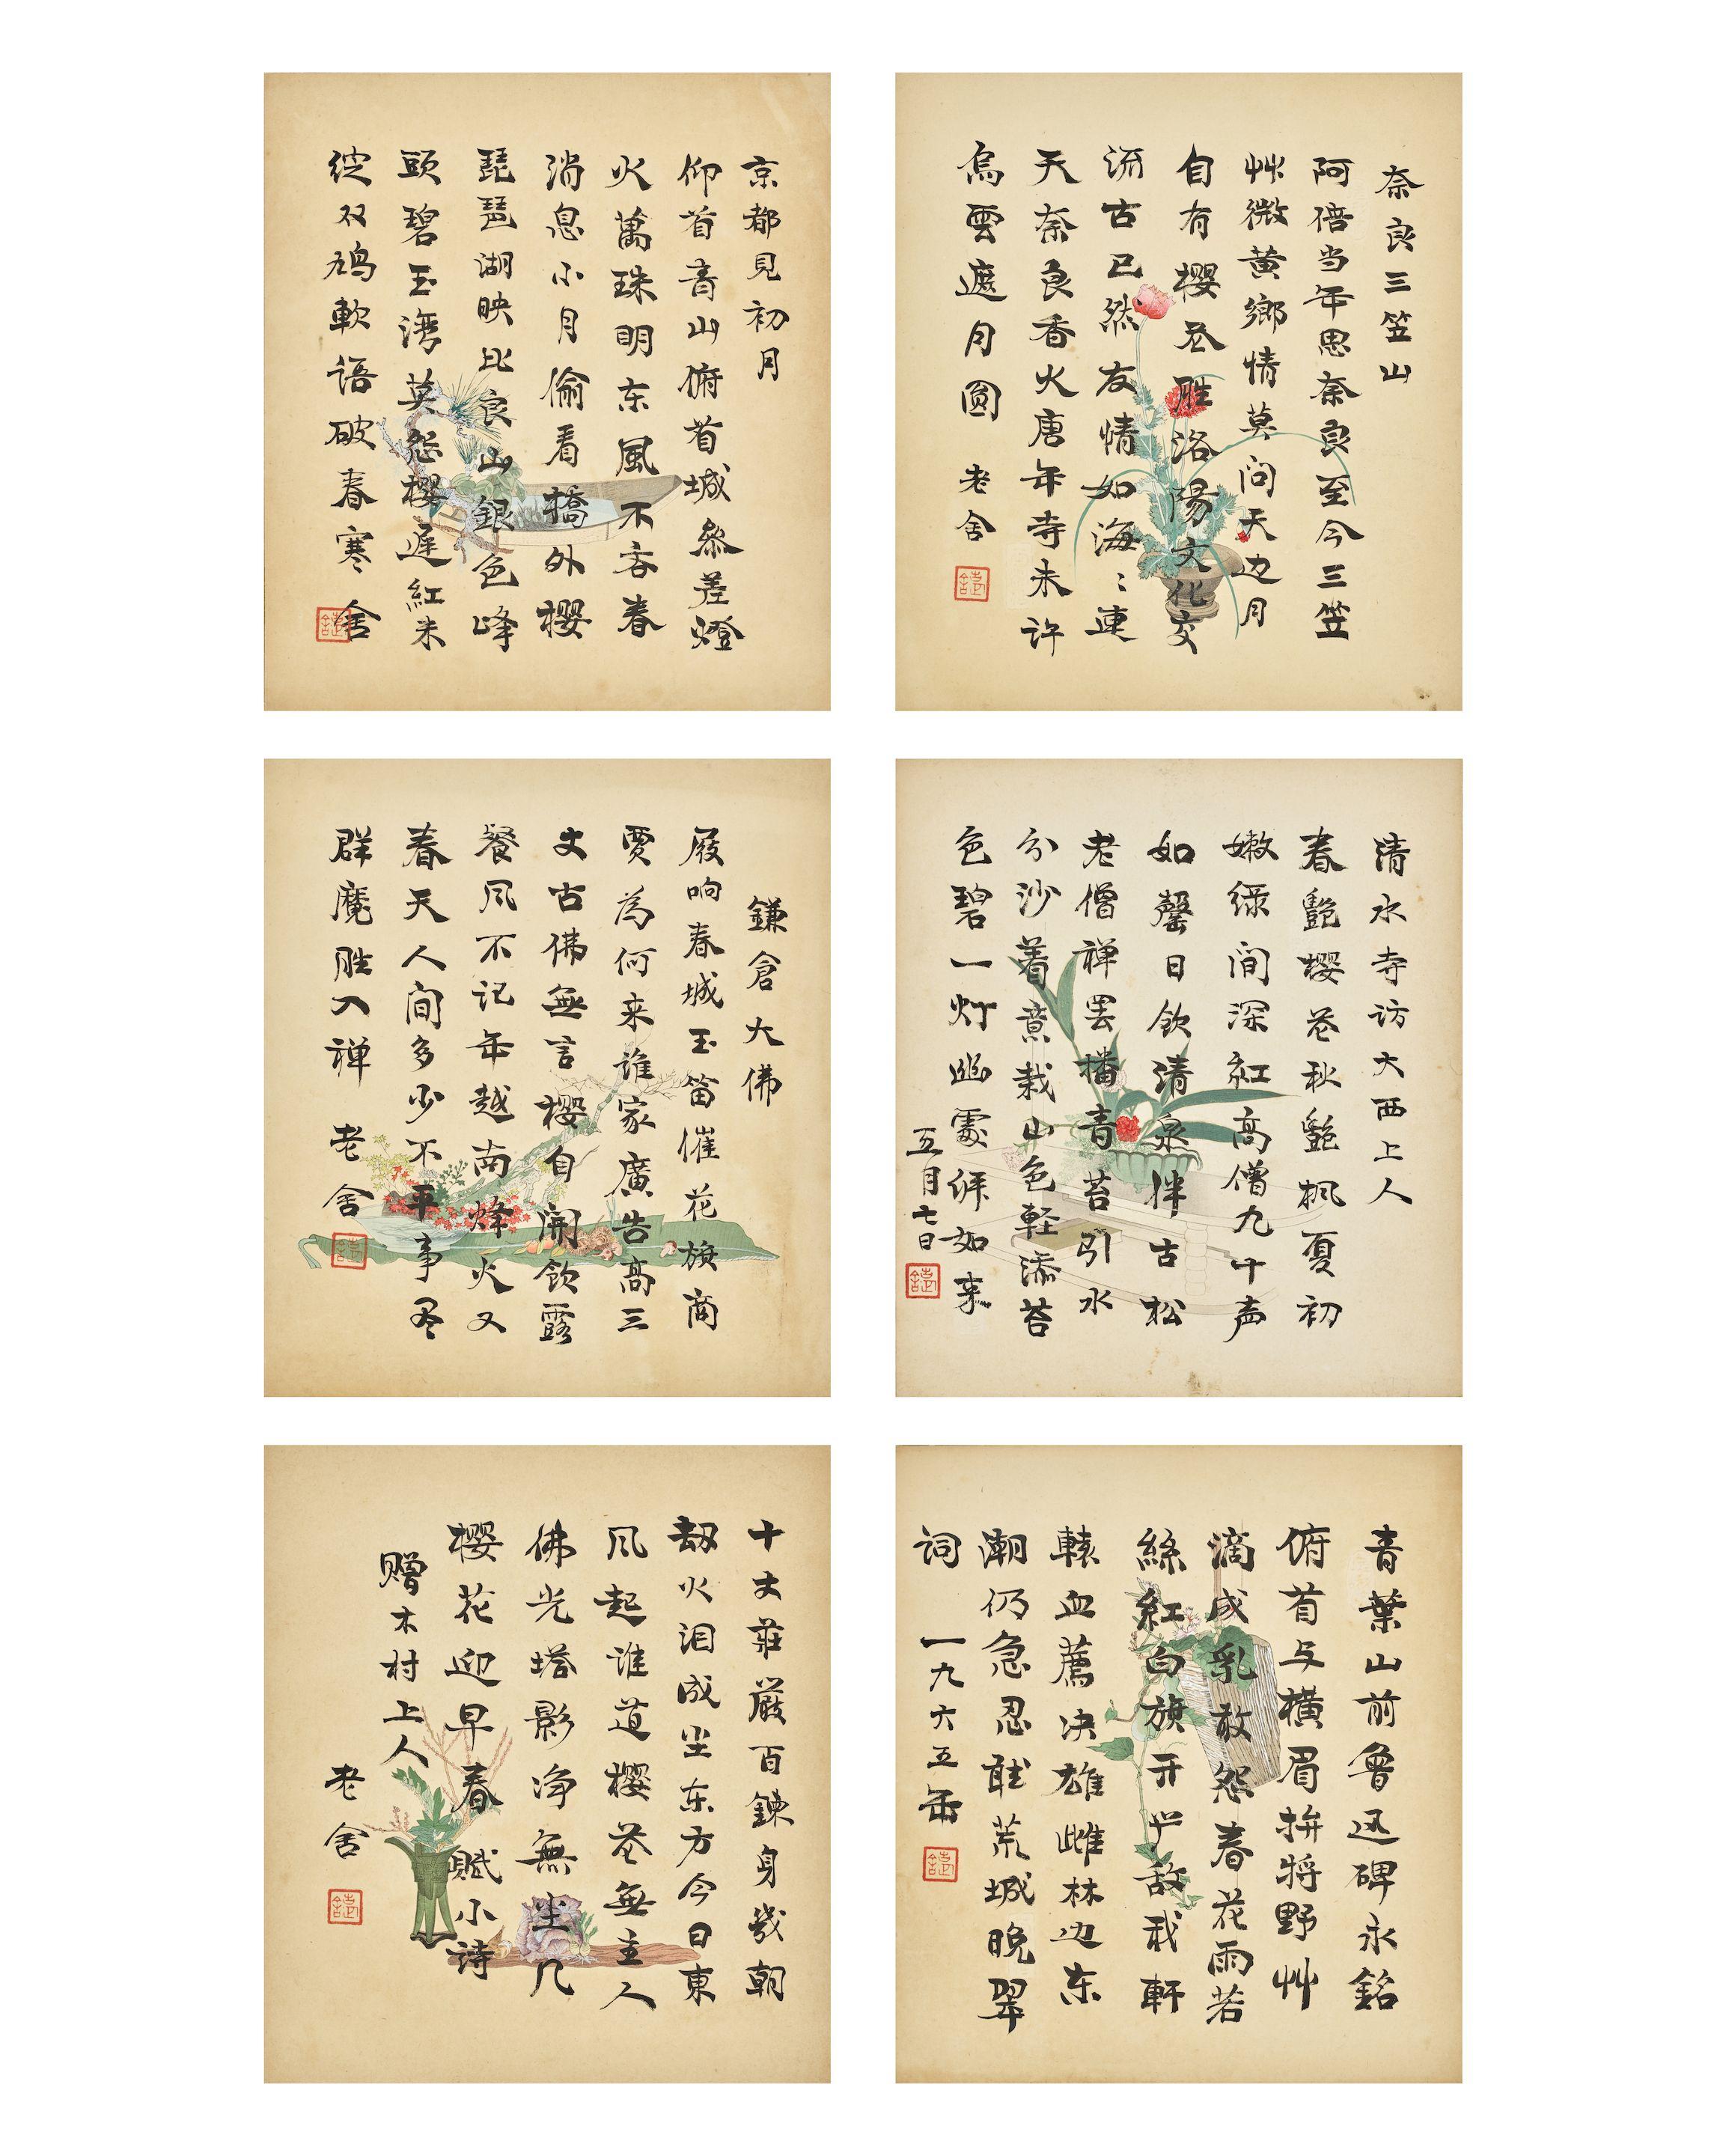 奈良三笠山
阿倍当年思奈良至今三笠
艸微黄鄉情莫问天边月
自有櫻花胜洛陽文化交
流古已然友情如海〻連
天奈良香火唐年寺未许
烏雲遮月圓 老舍
京都見初月
仰首青山俯首城参差燈
火萬珠明东風不吝春
消息小月偷看橋外櫻
琵琶湖映比良山銀色峰
頭碧玉湾莫怨櫻遲紅未
绽双鳩軟語破春寒 舍
清水寺访大西上人
春豔櫻花秋豔枫夏初
嫩绿间深紅高僧九十声
如罄日飲清泉伴古松
老僧禅罢播青苔引水
分沙着意栽山色軽添苔
色碧一灯幽處拜如来
五月七日
鎌倉大佛
屐响春城玉笛催花旗商
賈為何来谁家廣告高三
丈古佛無言櫻自開飲露
餐风不记年越南烽火又
春天人间多少不平事尽
群魔胜入禅 老舍
青葉山前魯迅碑永銘
俯首与横眉拚将野艸
滴成乳敢怨春花雨若
絲紅白旗开严敌我軒
轅血薦决雄雌林边东
潮仍急忍聼荒城晚翠
词 一九六五年
十丈莊嚴百鍊身幾朝
劫火泪成尘东方今日東
风起谁道櫻花無主人
佛光塔影净無尘几
樱花迎早春 賦小诗
赠木村上人
老舍